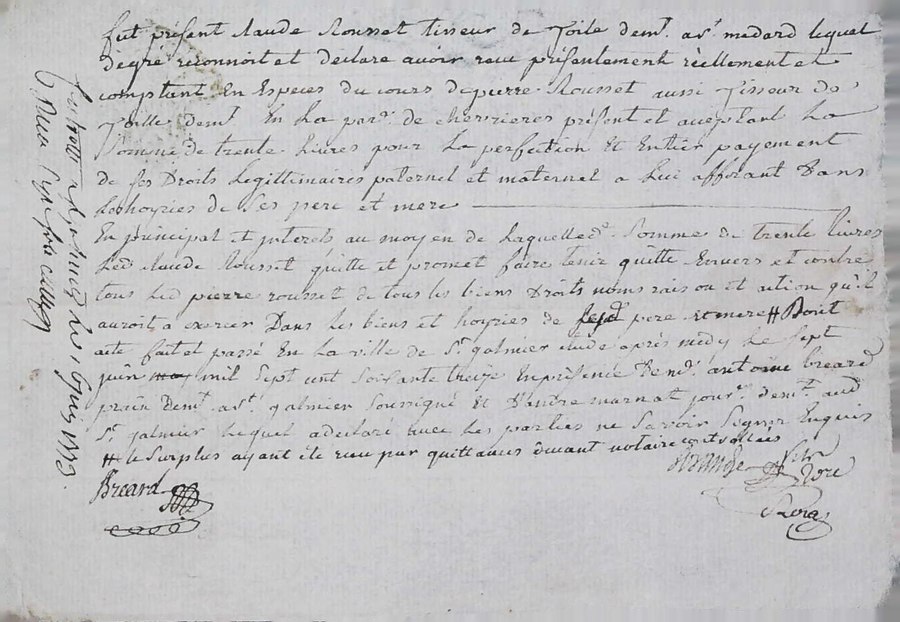 fut présent claude Rousset tisseur de Toile demt. a st. medard lequel
degré reconnoit et declare avoir recu présentement réellement et
comptant En Especes du cours de pierre Rousset aussi Tisseur de
Toille demt. En La parse. de chevrieres présent et aceptant La
Somme de trente Livres pour La perfection Et Entier payement
de ses Droits Legittimaires paternel et maternel a Lui afferant Dans
Les hoyries de Ses pere et mere
En principal et interets au moyen de Laquelle de. Somme de trente livres
Led. claude Rousset quitte et promet faire tenir quitte Envers et contre
tous Led pierre rousset de tous les biens Droits noms raisons et action qu'il
auroit a exercer Dans Les biens et hoyries de pere et mere # Dont
acte fait et passé En La ville de St. galmier Etude après midy Le sept
juin mil Sept cent Soixante treize En présence De antoine breard
demt. a st. galmier Soussigné Et D'andré marnat jour. demt. aud.
St. galmier Lequel a declaré avec Les parties ne Savoir Signer Enquis
# Le Surplus ayant été recu par quittances devant notaire controllees
Breard